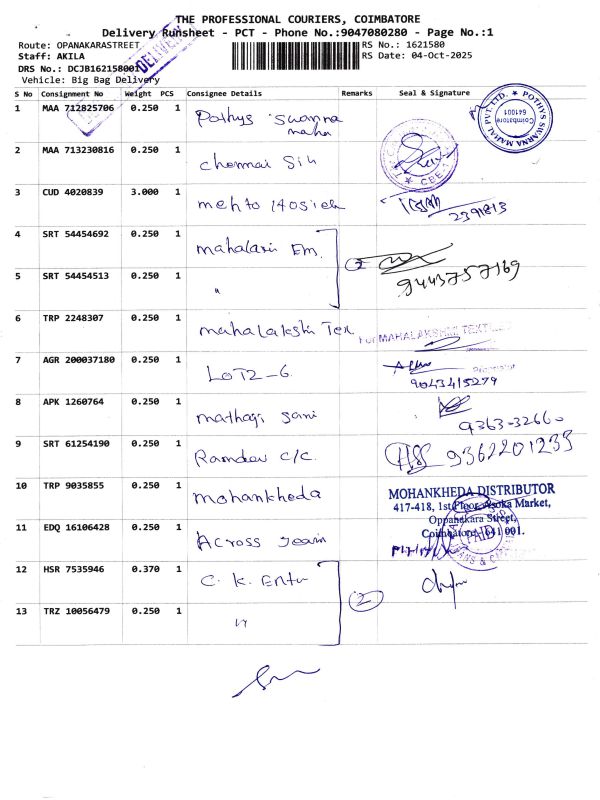 THE PROFESSIONAL COURIERS, COIMBATORE
Delivery Runsheet - PCT - Phone No.:9047080280 - Page No.:1
Route: OPANAKARASTREET
RS No.: 1621580
Staff: AKILA
RS Date: 04-Oct-2025
DRS No.: DCJB162158001
Vehicle: Big Bag Delivery
DELIVERY
S No Consignment No Weight PCS Consignee Details Remarks Seal & Signature
1 MAA 712825706 0.250 1 Pothys Swarna maha
POTHYS SWARNA MAHAL PVT. LTD. Coimbatore 641001
2 MAA 713230816 0.250 1 Chennai Silk
CBE-1
3 CUD 4020839 3.000 1 mehto Hosieh
2391813
4 SRT 54454692 0.250 1 mahalaxi Em.
2
9443757169
5 SRT 54454513 0.250 1 "
6 TRP 2248307 0.250 1 mahalakshi Tex
For MAHALAKSHMI TEXTILES
7 AGR 200037180 0.250 1 LOT2-6
9043415279
8 APK 1260764 0.250 1 mathaji Sani
9363-3266-
9 SRT 61254190 0.250 1 Ramdev C/C.
9362201235
10 TRP 9035855 0.250 1 mohankheda
MOHANKHEDA DISTRIBUTOR
417-418, 1st Floor, Asoka Market,
Oppanakara Street,
Coimbatore - 641 001.
11 EDQ 16106428 0.250 1 Across Jeain
PAID
12 HSR 7535946 0.370 1 C. K. Enter
2
13 TRZ 10056479 0.250 1 "